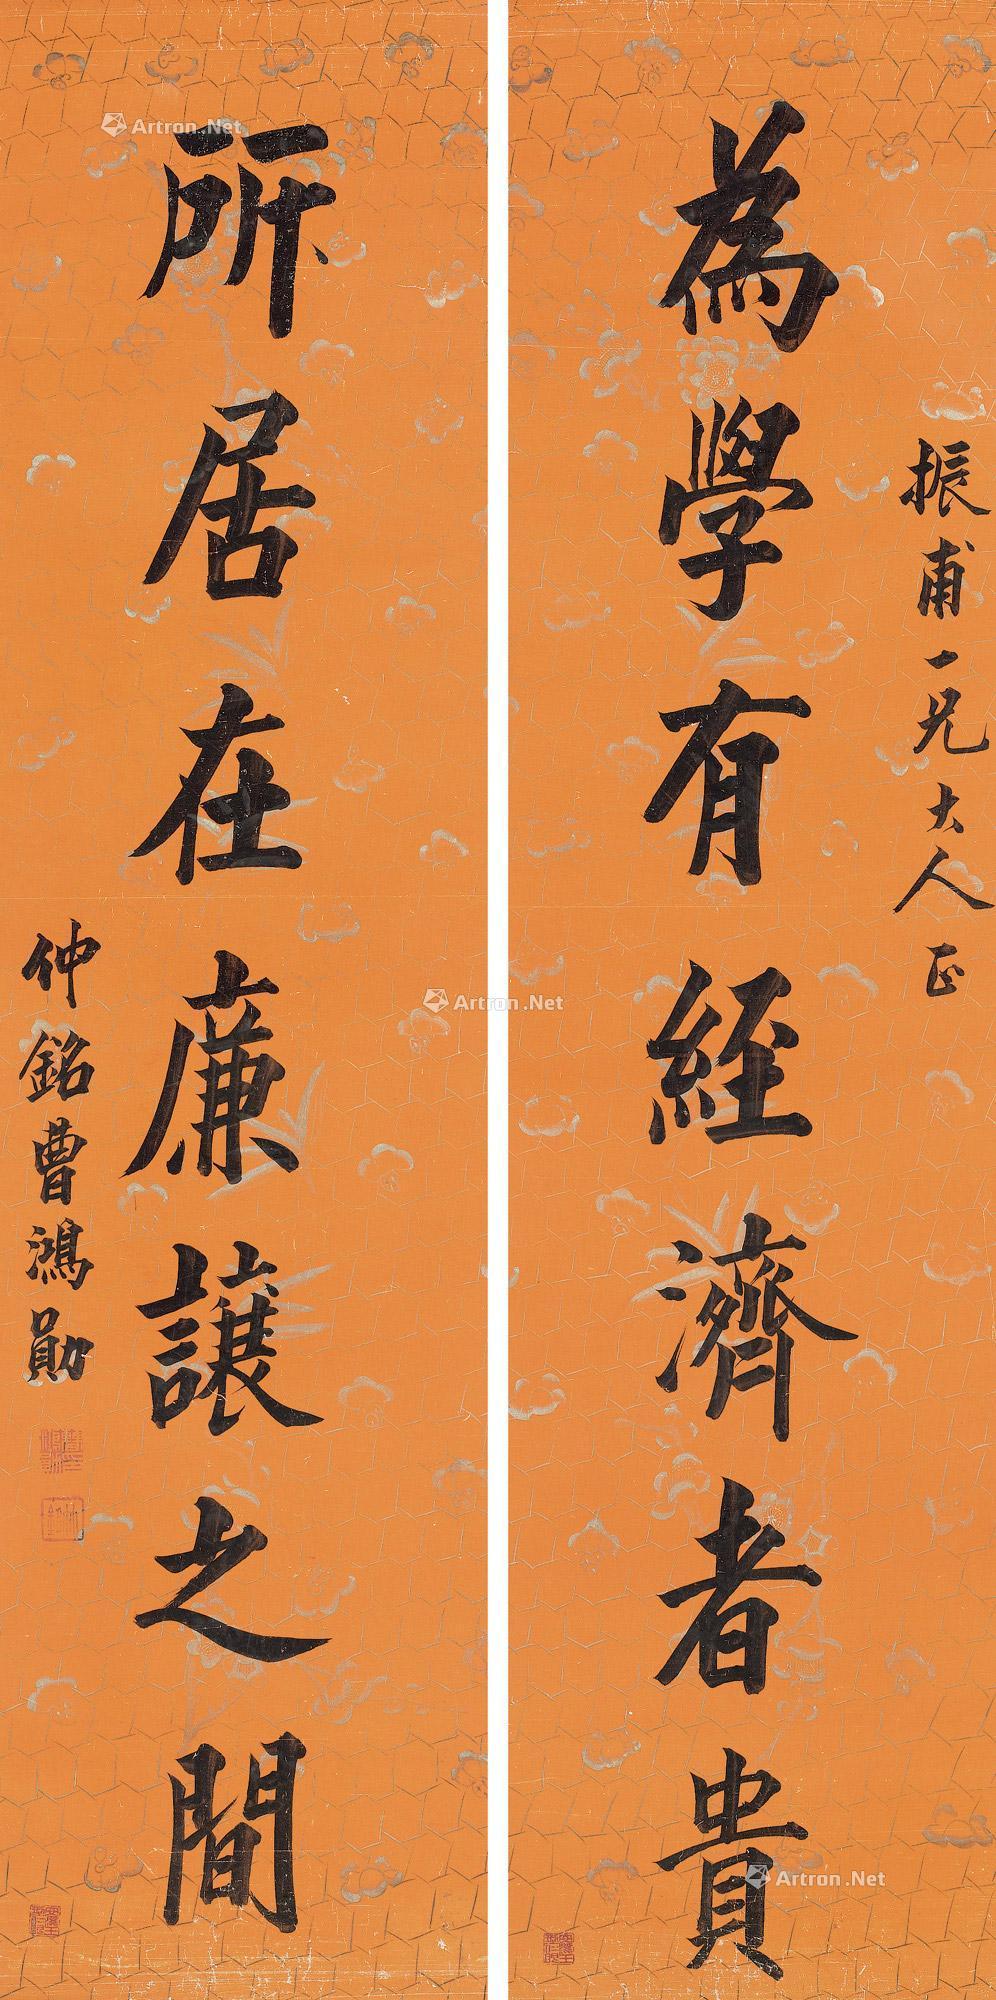 振甫一兄大人正
為學有經濟者貴
所居在廉讓之間
仲銘曹鴻勛
Artron.Net
Artron.Net
Artron.Net